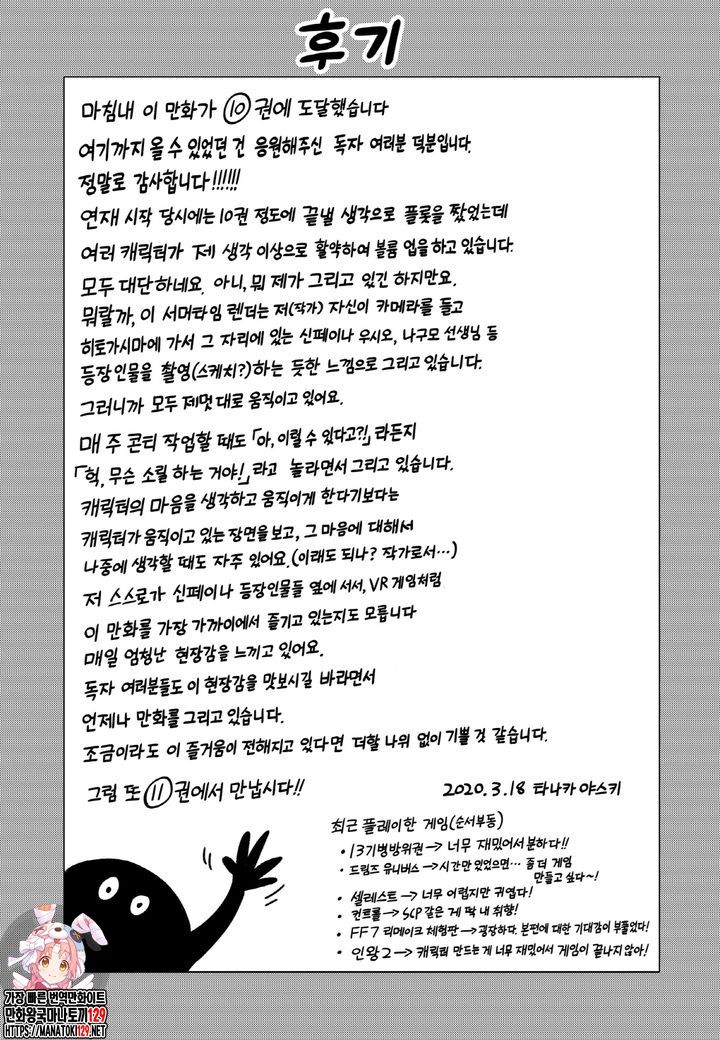 후기
마침내 이 만화가 10권에 도달했습니다
여기까지 올 수 있었던 건 응원해주신 독자 여러분 덕분입니다.
정말로 감사합니다!!!!!!
연재 시작 당시에는 10권 정도에 끝낼 생각으로 플롯을 짰었는데
여러 캐릭터가 제 생각 이상으로 활약하여 볼륨 업을 하고 있습니다.
모두 대단하네요. 아니, 뭐 제가 그리고 있긴 하지만요.
뭐랄까, 이 서머타임 렌더는 저(작가) 자신이 카메라를 들고
히토가시마에 가서 그 자리에 있는 신페이나 우시오, 나구모 선생님 등
등장인물을 촬영(스케치?)하는 듯한 느낌으로 그리고 있습니다.
그러니까 모두 제멋대로 움직이고 있어요.
매 주 콘티 작업할 때도 「아, 이럴 수 있다고?!」라든지
「헉, 무슨 소릴 하는 거야!」라고 놀라면서 그리고 있습니다.
캐릭터의 마음을 생각하고 움직이게 한다기보다는
캐릭터가 움직이고 있는 장면을 보고, 그 마음에 대해서
나중에 생각할 때도 자주 있어요.(이래도 되나? 작가로서…)
저 스스로가 신페이나 등장인물들 옆에 서서, VR 게임처럼
이 만화를 가장 가까이에서 즐기고 있는지도 모릅니다
매일 엄청난 현장감을 느끼고 있어요.
독자 여러분들도 이 현장감을 맛보시길 바라면서
언제나 만화를 그리고 있습니다.
조금이라도 이 즐거움이 전해지고 있다면 더할 나위 없이 기쁠 것 같습니다.
그럼 또 11권에서 만납시다!!
2020.3.18 타나카 야스키
최근 플레이한 게임(순서부동)
・13기병방위권→너무 재밌어서 분하다!!
・드림즈 유니버스→시간만 있었으면… 좀 더 게임
만들고 싶다~!
・셀레스트→너무 어렵지만 귀엽다!
・컨트롤→SCP 같은 게 딱 내 취향!
・FF7 리메이크 체험판→굉장하다. 본편에 대한 기대감이 부풀었다!
・인왕2→캐릭터 만드는 게 너무 재밌어서 게임이 끝나지 않아!
가장 빠른 번역만화이트
만화왕국마나토끼129
HTTPS://MANATOKI129.NET